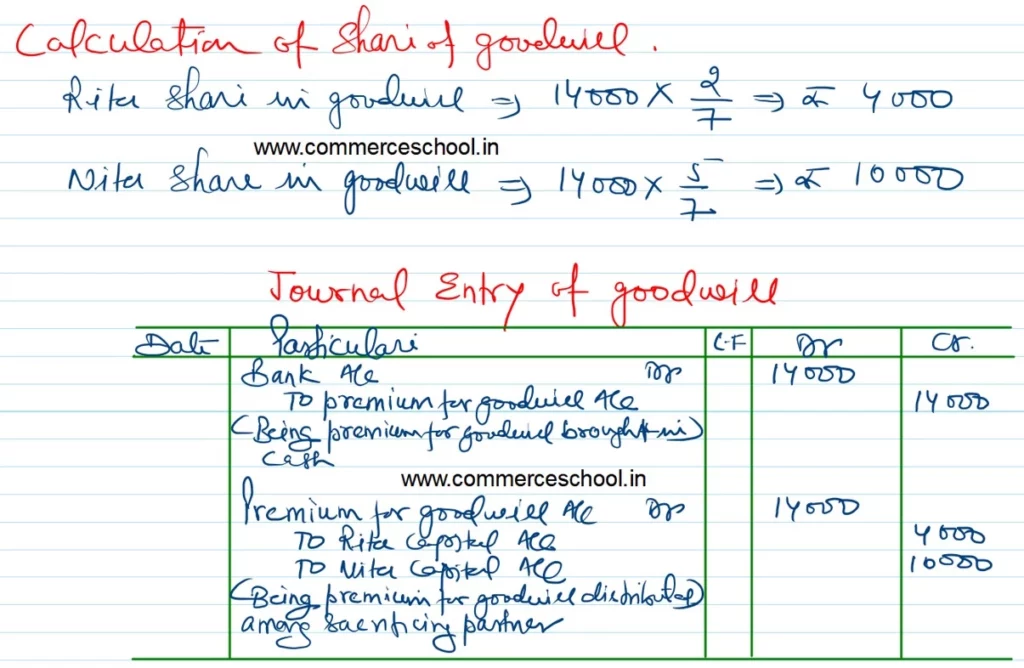 Calculation of Share of goodwill.
Rita Share in goodwill ⇒ 14000 × 2/7 ⇒ ₹ 4000
www.commerceschool.in
Nita Share in goodwill ⇒ 14000 × 5/7 ⇒ ₹ 10000
Journal Entry of goodwill
Date Particulars L.F Dr Cr.
Bank A/c Dr 14000
To premium for goodwill A/c 14000
(Being premium for goodwill brought in)
Cash
www.commerceschool.in
Premium for goodwill A/c Dr 14000
To Rita Capital A/c 4000
To Nita Capital A/c 10000
(Being premium for goodwill distributed)
among sacrificing partner